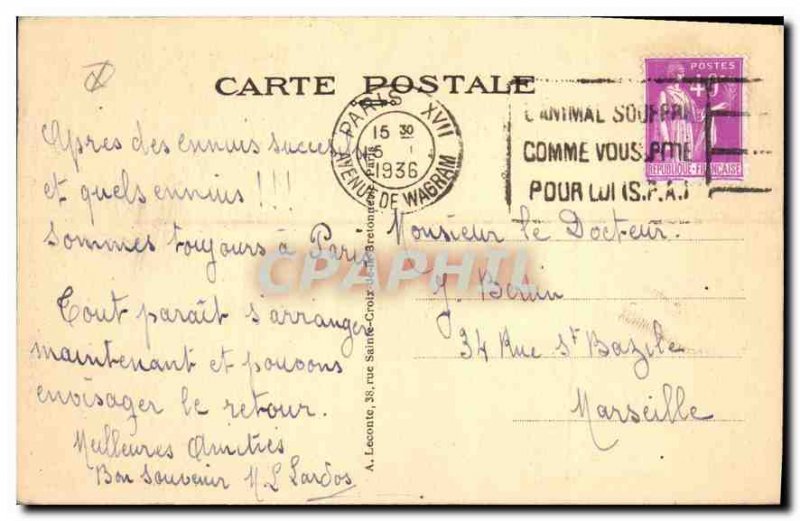 CARTE POSTALE
POSTES
40c
RÉPUBLIQUE-FRANÇAISE
PARIS XVII
15 30
5 I
1936
AVENUE DE WAGRAM
L'ANIMAL SOUFFRE
COMME VOUS. PITIE
POUR LUI (S.P.A.)
Après des ennuis success
et quels ennuis !!!
Sommes toujours à Paris
Tout paraît s'arranger
maintenant et pouvons
envisager le retour.
Meilleures Amitiés
Bon Souvenir
A. Leconte, 38, rue Sainte-Croix-de-la-Bretonnerie, Paris
Monsieur le Docteur.
34 Rue St Bazile
Marseille
CPAPHIL